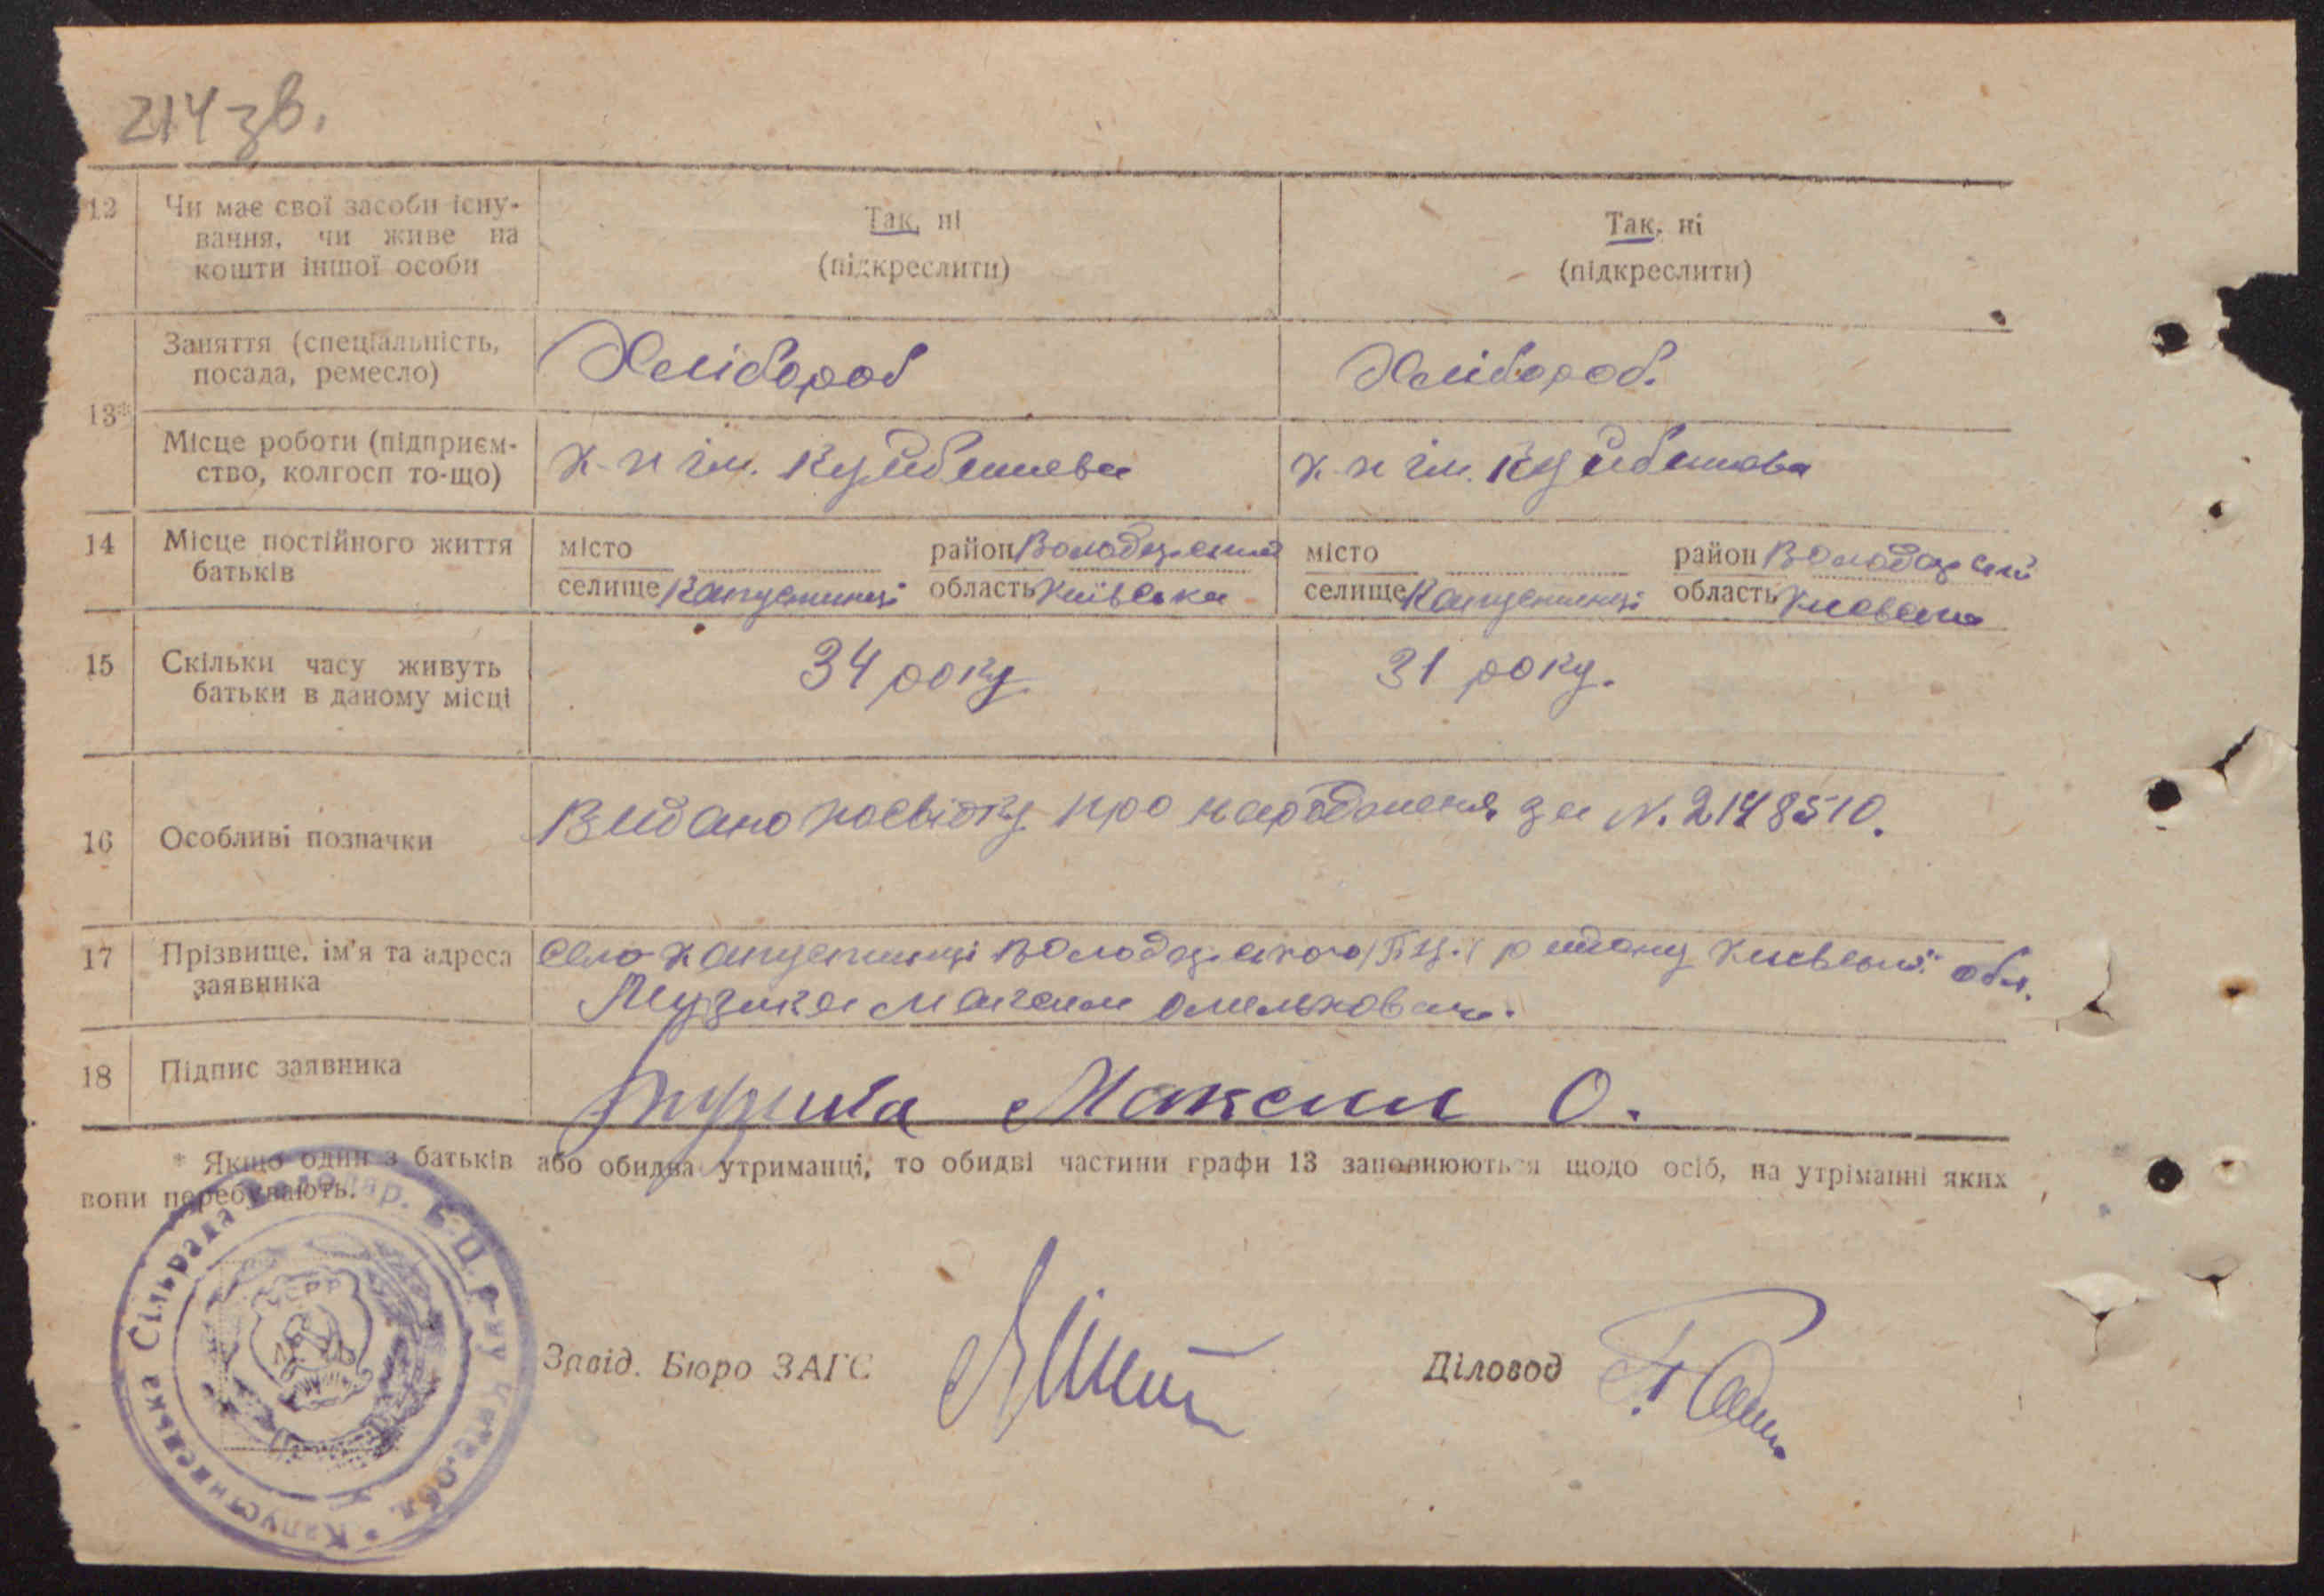 214 зв.
12 Чи має свої засоби існу- Так, ні Так, ні
вання, чи живе на (підкреслити) (підкреслити)
кошти іншої особи
Заняття (спеціальність, Хлібороб Хлібороб.
посада, ремесло)
13*
Місце роботи (підприєм- к-п ім. Куйбишева к-п ім. Куйбишова
ство, колгосп то-що)
14 Місце постійного життя місто район Володарський місто район Володарський
батьків селище Капустинці область Київська селище Капустинці область
15 Скільки часу живуть 34 року 31 року.
батьки в даному місці
16 Особливі позначки Видано посвідку про народженя за N. 2148510.
17 Прізвище, ім'я та адреса Село Капустинці Володарського району обл.
заявника Музика Максим Омелькович.
18 Підпис заявника Музика Максим О.
* Якщо один з батьків або обидва утриманці, то обидві частини графи 13 заповнюються щодо осіб, на утріманні яких
вони перебувають.
Капустинська Сільрада Володар. Б-Ц. р-ну Обл.
УСРР
Завід. Бюро ЗАГС Діловод